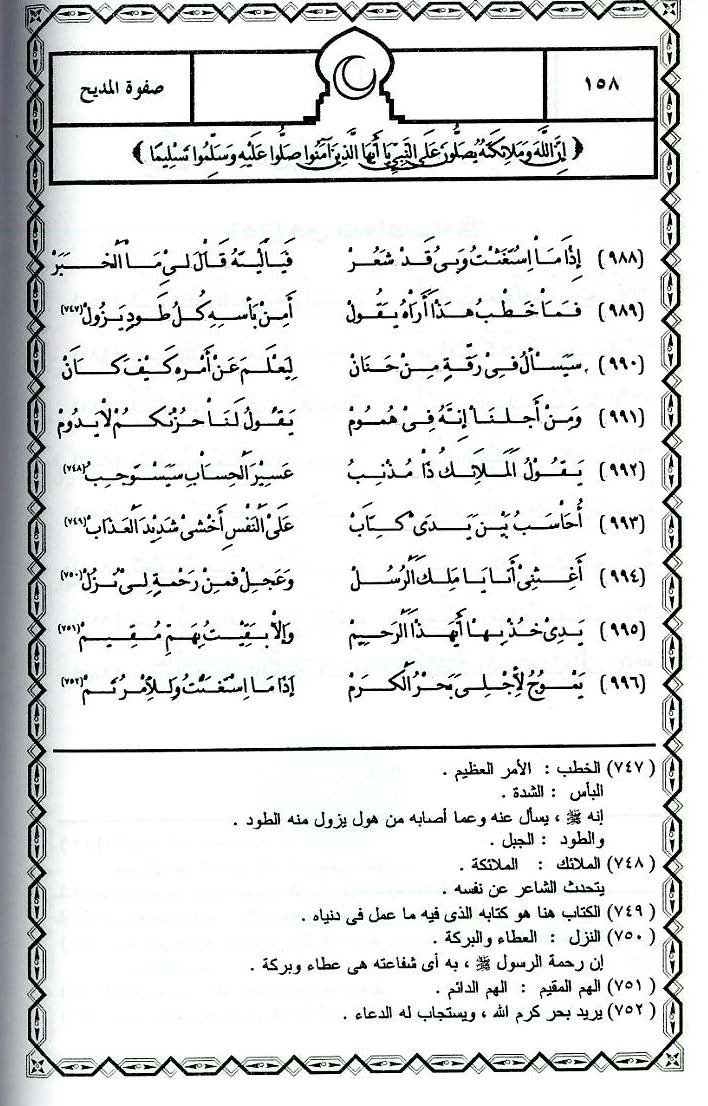 ١٥٨
صفوة المديح
﴿ إِنَّ اللَّهَ وَمَلَائِكَتَهُ يُصَلُّونَ عَلَى النَّبِيِّ يَا أَيُّهَا الَّذِينَ آمَنُوا صَلُّوا عَلَيْهِ وَسَلِّمُوا تَسْلِيمًا ﴾
(٩٨٨) إِذَا مَا اسْتَغَثْتُ وَبِى قَدْ شَعَرْ فَيَالَيْتَهُ قَالَ لِىْ مَا الْخَبَرْ
(٩٨٩) فَمَا خَطْبُ هَذَا أَرَاهُ يَقُولُ أَمِنْ بَأْسِهِ كُلُّ طَودٍ يَزُولُ (٧٤٧)
(٩٩٠) سَيَسْأَلُ فِىْ رِقَّةٍ مِنْ حَنَانْ لِيَعْلَمَ عَنْ أَمْرِهِ كَيْفَ كَانْ
(٩٩١) وَمِنْ أَجْلِنَا إِنَّهُ فِىْ هُمُومْ يَقُولُ لَنَا حُزْنُكُمْ لَا يَدُومْ
(٩٩٢) يَقُولُ الْمَلَائِكُ ذَا مُذْنِبُ عَسِيْرَ الْحِسَابِ سَيَسْتَوجِبُ (٧٤٨)
(٩٩٣) أُحَاسَبُ بَيْنَ يَدَىْ كِتَابْ عَلَى النَّفْسِ أَخْشَىْ شَدِيْدَ الْعَذَابْ (٧٤٩)
(٩٩٤) أَغِثْنِىْ أَنَا يَا مَلِكَ الرُّسُلْ وَعَجِلْ فَمِنْ رَحْمَةٍ لِىْ نُزُلْ (٧٥٠)
(٩٩٥) يَدِىْ خُذْ بِهَا أَيُّهَذَا الرَّحِيْمْ وَإِلاْ بَقِيْتُ بِهَمٍّ مُقِيْمْ (٧٥١)
(٩٩٦) يَمُوْجُ لِأَجْلِىْ بَحْرُ الْكَرَمْ إِذَا مَا اسْتَغَثْتُ وَلِلأَمْرُ تَمْ (٧٥٢)
(٧٤٧) الخطب : الأمر العظيم .
البأس : الشدة .
إنه ﷺ ، يسأل عنه وعما أصابه من هول يزول منه الطود .
والطود : الجبل .
(٧٤٨) الملائك : الملائكة .
يتحدث الشاعر عن نفسه .
(٧٤٩) الكتاب هنا هو كتابه الذى فيه ما عمل فى دنياه .
(٧٥٠) النزل : العطاء والبركة .
إن رحمة الرسول ﷺ ، به أى شفاعته هى عطاء وبركة .
(٧٥١) الهم المقيم : الهم الدائم .
(٧٥٢) يريد بحر كرم الله ، ويستجاب له الدعاء .